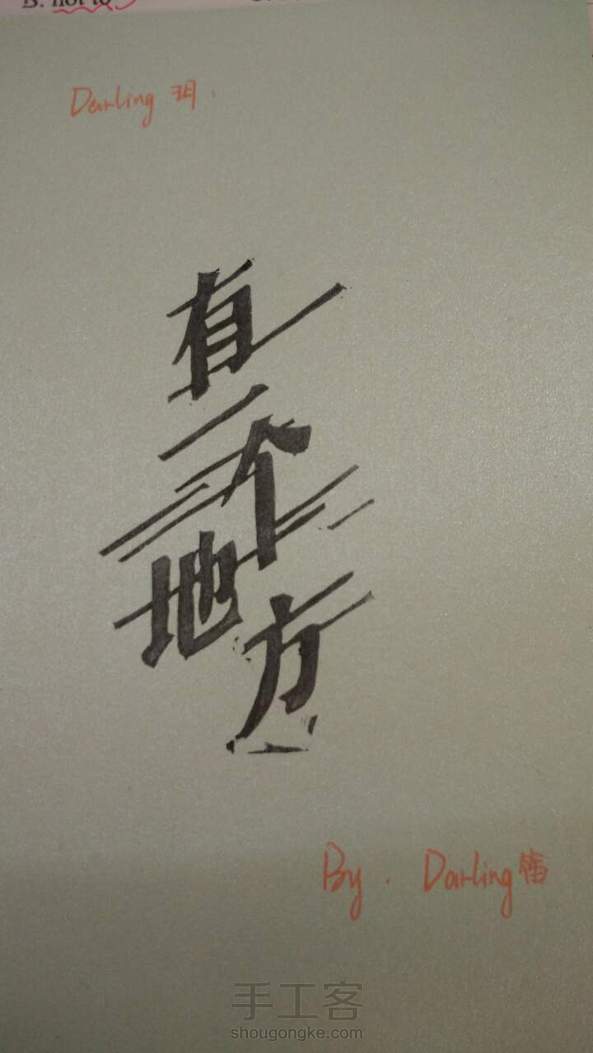 B. not to
Darling 玥
有
一个
地
方
By. Darling
手工客
shougongke.com